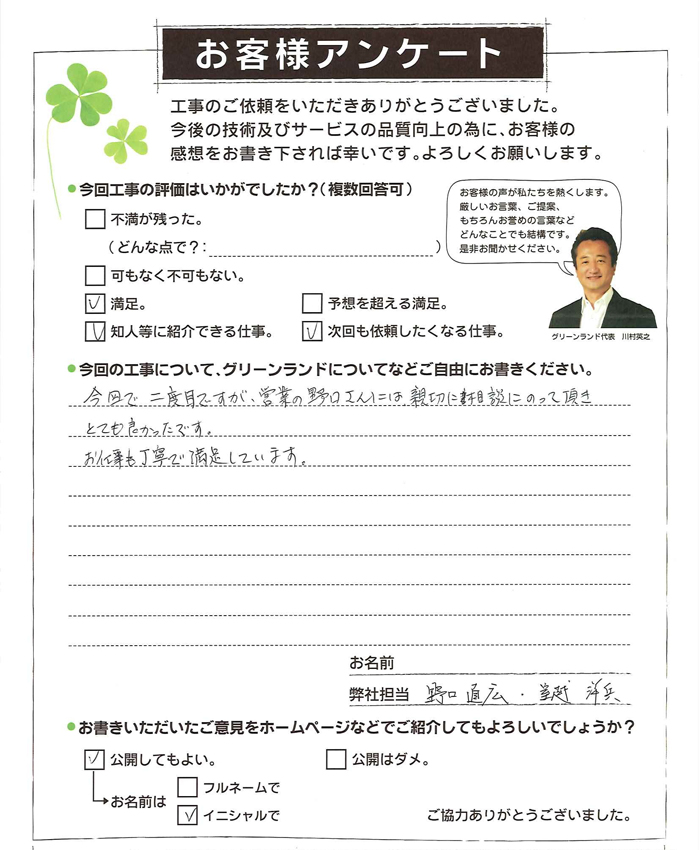 お客様アンケート
工事のご依頼をいただきありがとうございました。
今後の技術及びサービスの品質向上の為に、お客様の
感想をお書き下されば幸いです。よろしくお願いします。
今回工事の評価はいかがでしたか？（複数回答可）
不満が残った。
（どんな点で？：　　　）
可もなく不可もない。
満足。
予想を超える満足。
知人等に紹介できる仕事。
次回も依頼したくなる仕事。
お客様の声が私たちを熱くします。
厳しいお言葉、ご提案、
もちろんお誉めの言葉など
どんなことでも結構です。
是非お聞かせください。
グリーンランド代表　川村英之
今回の工事について、グリーンランドについてなどご自由にお書きください。
今回で二度目ですが、営業の野口さんには、親切に相談にのって頂き
とても良かったです。
お仕事も丁寧で満足しています。
お名前
弊社担当　野口 直広・洋兵
お書きいただいたご意見をホームページなどでご紹介してもよろしいでしょうか？
公開してもよい。
公開はダメ。
お名前は
フルネームで
イニシャルで
ご協力ありがとうございました。